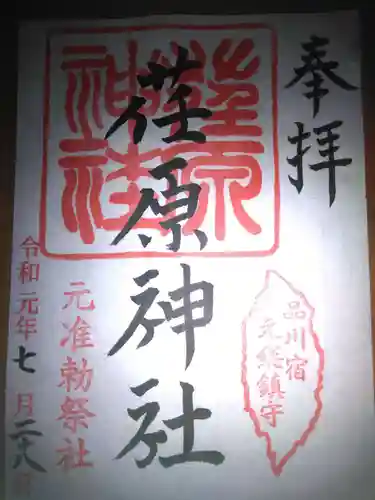 奉拝
荏原神社
荏原神社
品川宿
元総鎮守
元准勅祭社
令和元年七月二十八日